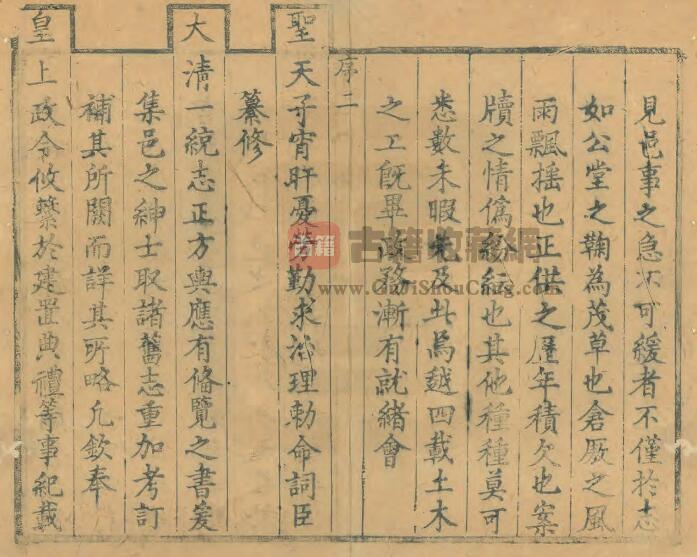 見邑事之急不可緩者不僅於志
如公堂之鞠為茂草也倉厫之風
雨飄搖也正供之歷年積欠也案
牘之情偽紛紜也其他種種莫可
悉數未暇先及此焉越四載土木
之工旣畢政務漸有就緒會
序二
聖天子宵旰憂勞勤求治理勅命詞臣
纂修
大清一統志正方輿應有俻覽之書爰
集邑之紳士取諸舊志重加考訂
補其所闕而詳其所略凢欽奉
皇上政令攸繫於建置典禮等事紀載
古籍 古籍收藏網
www.GuJiShouCang.com